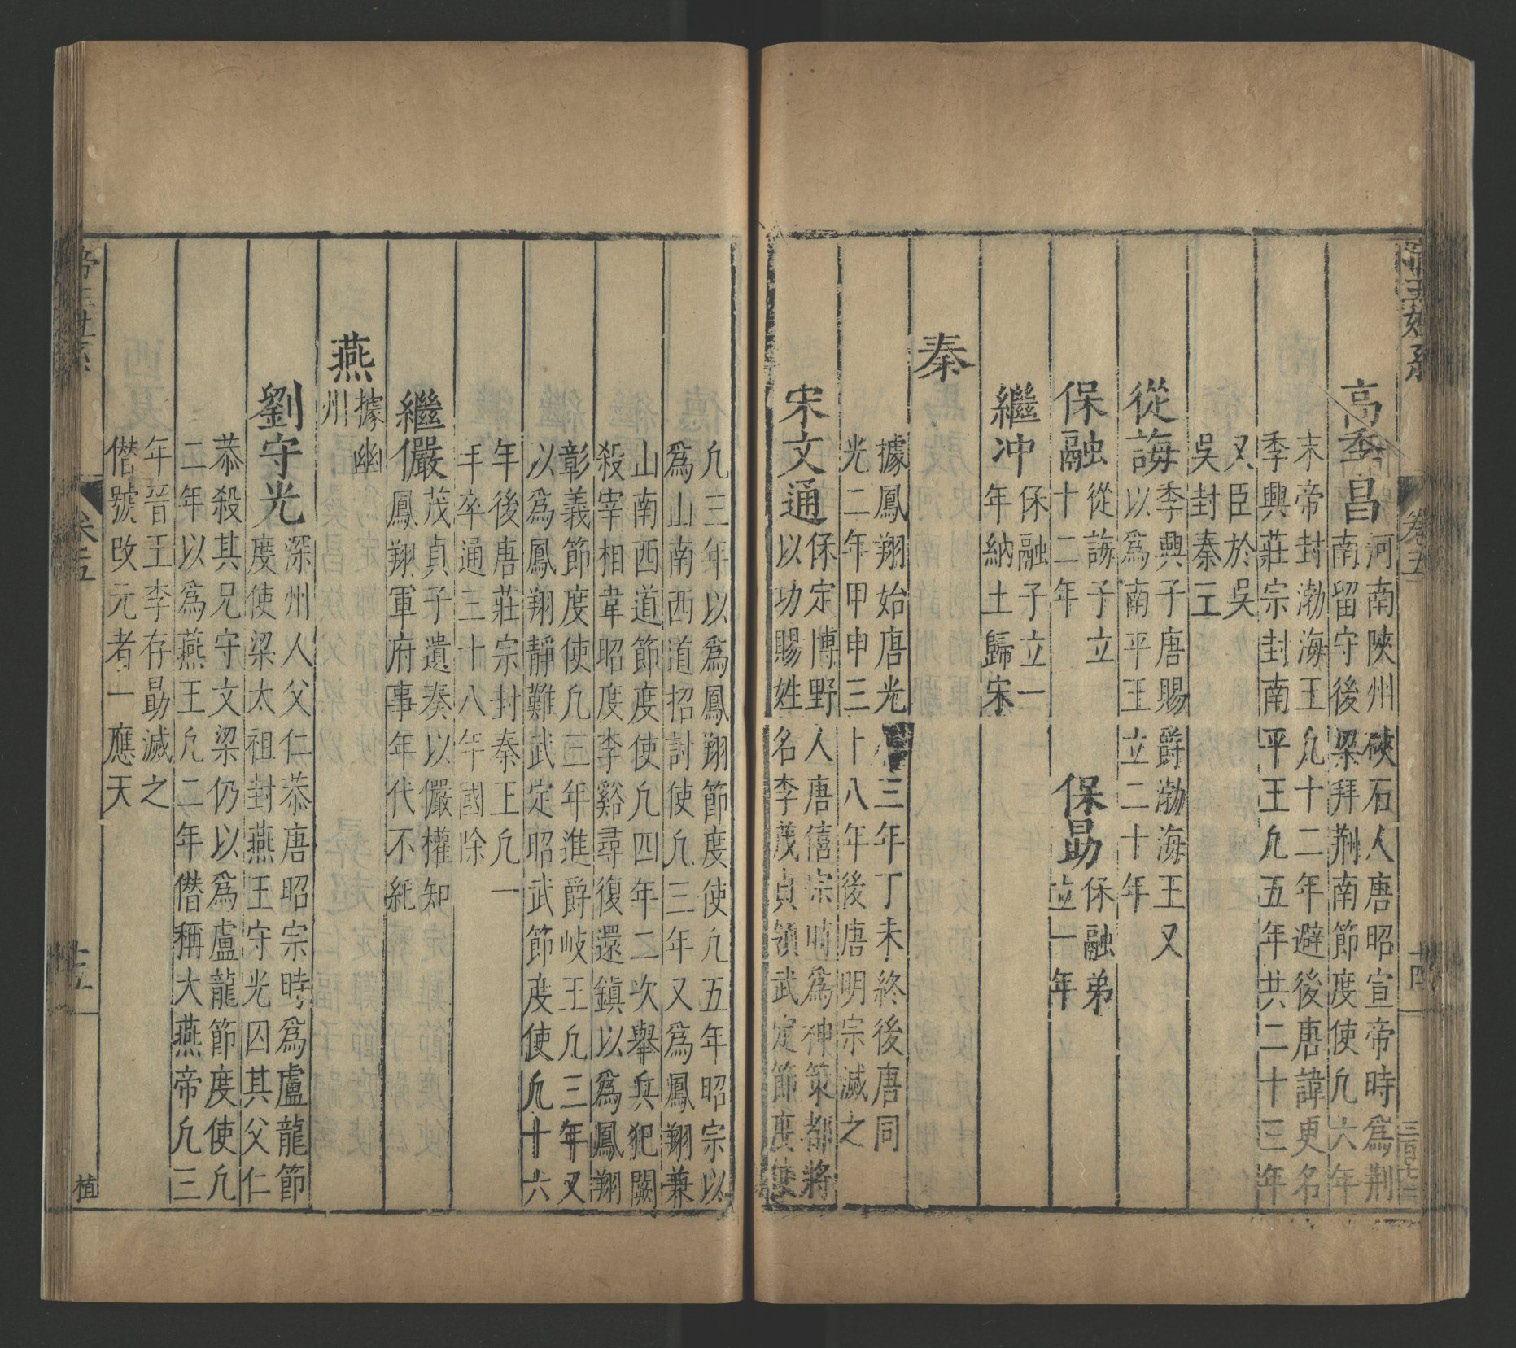 高季昌
河南陝州硤石人唐昭宣帝時爲荆
南留守後梁拜荆南節度使凢六年
末帝封渤海王凢十二年避後唐諱更名
季興莊宗封南平王凢五年共二十三年
又臣於吳
吳封秦王
從誨
季興子唐賜爵渤海王又
以爲南平王立二十年
保融
從誨子立
十二年
保勗
保融弟
立一年
繼冲
保融子立一
年納土歸宋
秦
據鳳翔始唐光三年丁未終後唐同
光二年甲申三十八年後唐明宗滅之
宋文通
保定博野人唐僖宗時爲神策都將
以功賜姓名李茂貞領武定節度使
凢三年以爲鳳翔節度使凢五年昭宗以
爲山南西道招討使凢三年又爲鳳翔兼
山南西道節度使凢四年二次舉兵犯闕
殺宰相韋昭度李谿尋復還鎮以爲鳳翔
彰義節度使凢三年進爵岐王凢三年又
以爲鳳翔靜難武定昭武節度使凢十六
年後唐莊宗封秦王凢一
年卒通三十八年國除
繼儼
茂貞子遺奏以儼權知
鳳翔軍府事年代不紀
燕
據幽
州
劉守光
深州人父仁恭唐昭宗時爲盧龍節
度使梁太祖封燕王守光囚其父仁
恭殺其兄守文梁仍以爲盧龍節度使凢
二年以爲燕王凢二年僭稱大燕帝凢三
年晉王李存勗滅之
僭號改元者一應天
帝王世系
卷五
十五
植